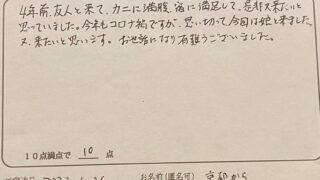 4年前、友人と来て、カニに満腹、宿に満足して、是非又来たいと
思っていました。今年もコロナ禍ですが、思い切って今回は娘と来ました。
又、来たいと思います。お世話になり有難うございました。
10点満点で 10 点
お名前(匿名可) 京都から